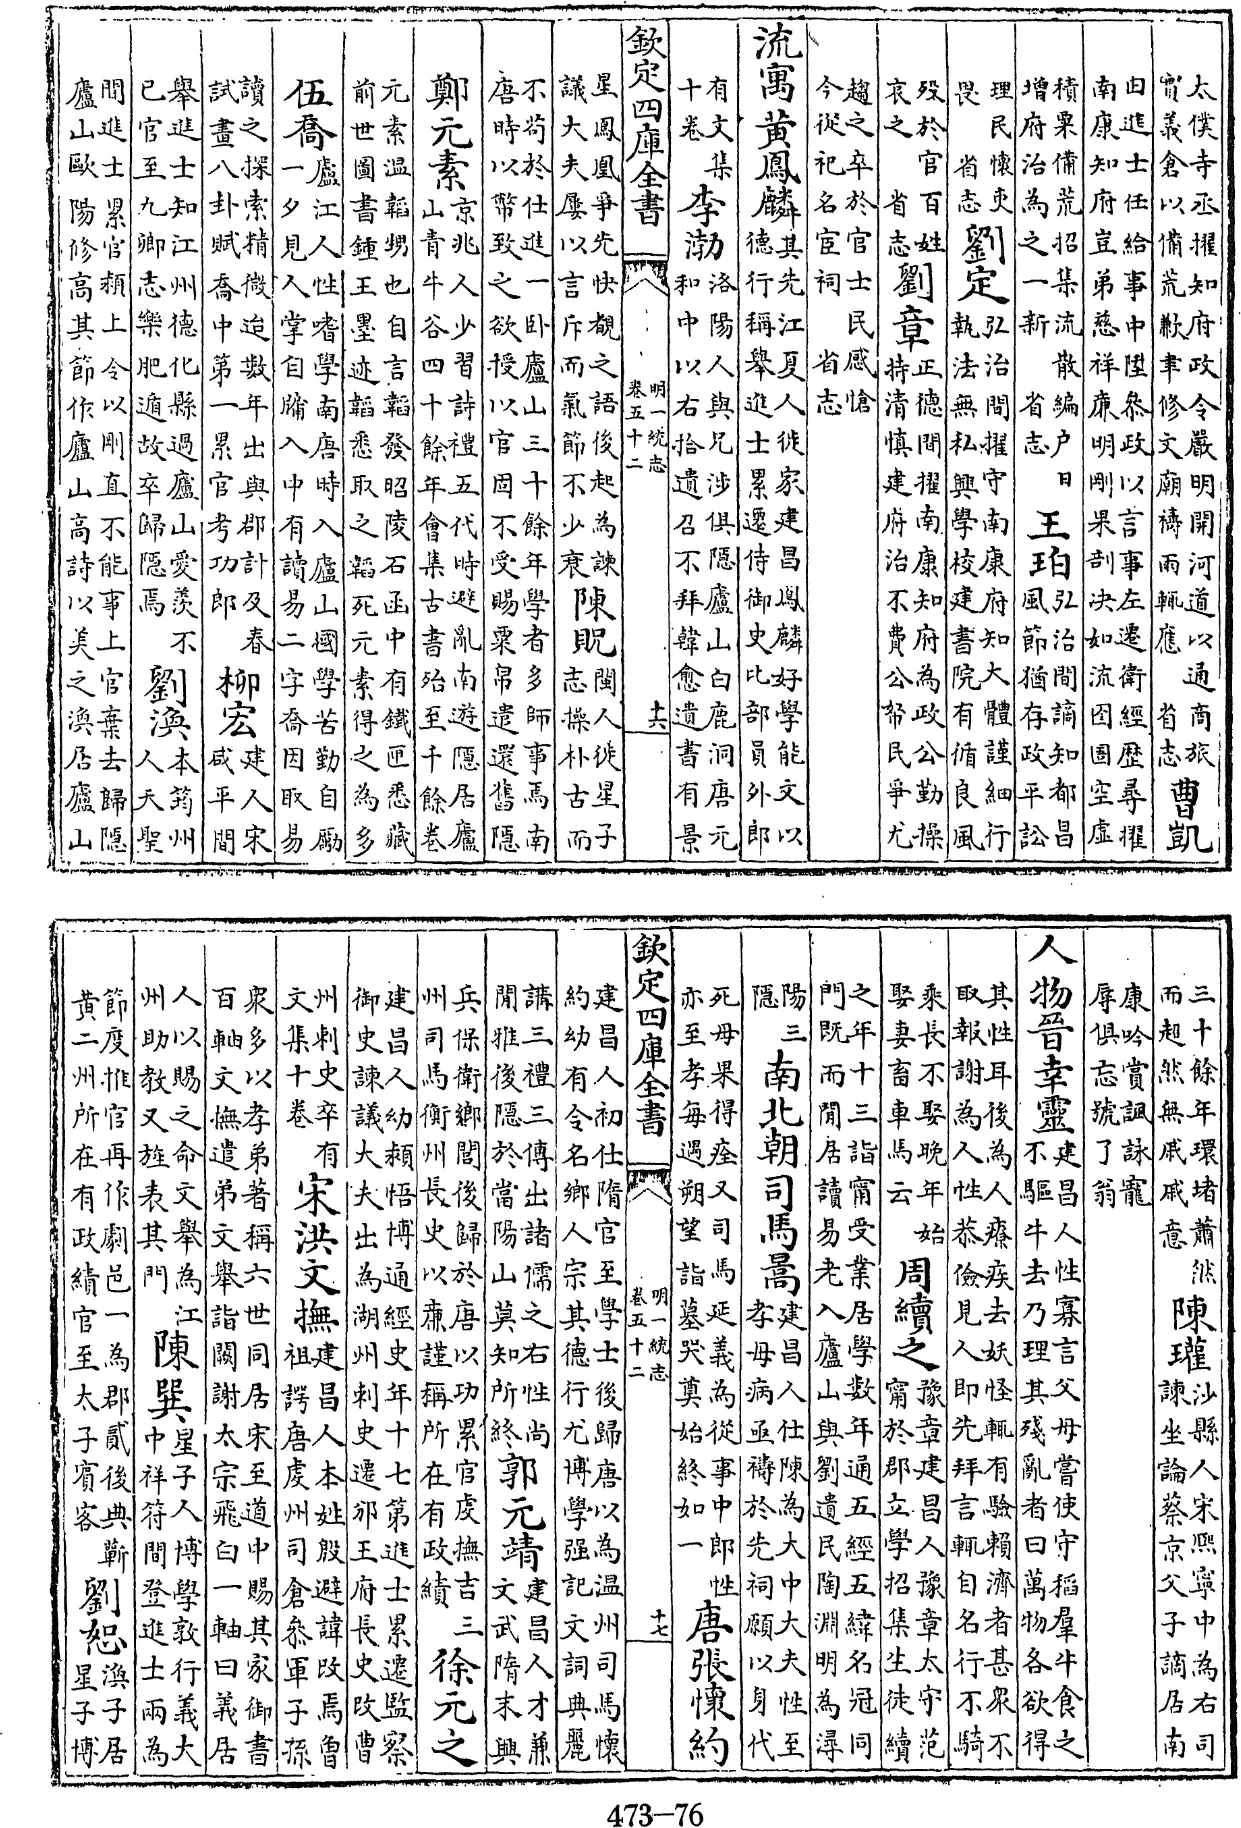 太僕寺丞擢知府政令嚴明開河道以通商旅
實義倉以備荒歉聿修文廟禱雨輒應 省志
曹凱
由進士任給事中陞叅政以言事左遷衛經歷尋擢
南康知府豈弟慈祥廉明剛果剖决如流囹圄空虛
積粟備荒招集流散編户日
增府治為之一新 省志
王珀
弘治間謫知都昌
風節猶存政平訟
理民懷吏
畏 省志
劉定
弘治間擢守南康府知大體謹細行
執法無私興學校建書院有脩良風
歿於官百姓
哀之 省志
劉章
正德間擢南康知府為政公勤操
持清慎建府治不費公帑民爭尤
趨之卒於官士民感愴
今從祀名宦祠 省志
流寓黃鳳麟
其先江夏人徙家建昌鳳麟好學能文以
德行稱舉進士累遷侍御史比部員外郎
有文集
十卷
李渤
洛陽人與兄涉俱隱廬山白鹿洞唐元
和中以右拾遺召不拜韓愈遺書有景
欽定四庫全書
明一統志
卷五十二
十六
星鳳凰爭先快覩之語後起為諫
議大夫屢以言斥而氣節不少衰
陳貺
閩人徙星子
志操朴古而
不苟於仕進一卧廬山三十餘年學者多師事焉南
唐時以幣致之欲授以官固不受賜粟帛遣還舊隱
鄭元素
京兆人少習詩禮五代時避亂南遊隱居廬
山青牛谷四十餘年會集古書殆至千餘卷
元素温韜甥也自言韜發昭陵石函中有鐵匣悉藏
前世圖書鍾王墨迹韜悉取之韜死元素得之為多
伍喬
廬江人性嗜學南唐時入廬山國學苦勤自勵
一夕見人掌自牖入中有讀易二字喬因取易
讀之探索精微迨數年出與郡計及春
試畫八卦賦喬中第一累官考功郎
柳宏
建人宋
咸平間
舉進士知江州德化縣過廬山愛羨不
已官至九卿志樂肥遁故卒歸隱焉
劉渙
本筠州
人天聖
間進士累官潁上令以剛直不能事上官棄去歸隱
廬山歐陽修高其節作廬山高詩以美之渙居廬山
三十餘年環堵蕭然
而超然無戚戚意
陳瓘
沙縣人宋熙寧中為右司
諫坐論蔡京父子謫居南
康吟賞諷詠寵
辱俱忘號了翁
人物晉幸靈
建昌人性寡言父母嘗使守稻羣牛食之
不驅牛去乃理其殘亂者曰萬物各欲得
其性耳後為人療疾去妖怪輒有驗賴濟者甚衆不
取報謝為人性恭儉見人即先拜言輒自名行不騎
乘長不娶晚年始
娶妻畜車馬云
周續之
豫章建昌人豫章太守范
甯於郡立學招集生徒續
之年十三詣甯受業居學數年通五經五緯名冠同
門既而閒居讀易老入廬山與劉遺民陶淵明為潯
陽三
隱
南北朝司馬暠
建昌人仕陳為大中大夫性至
孝母病亟禱於先祠願以身代
死母果得痊又司馬延義為從事中郎性
亦至孝每遇朔望詣墓哭奠始終如一
唐張懷約
欽定四庫全書
明一統志
卷五十二
十七
建昌人初仕隋官至學士後歸唐以為温州司馬懷
約幼有令名鄉人宗其德行尤博學强記文詞典麗
講三禮三傳出諸儒之右性尚
閒雅後隱於當陽山莫知所終
郭元靖
建昌人才兼
文武隋末興
兵保衛鄉閭後歸於唐以功累官虔撫吉三
州司馬衡州長史以亷謹稱所在有政績
徐元之
建昌人幼穎悟博通經史年十七第進士累遷監察
御史諫議大夫出為湖州刺史遷邠王府長史改曹
州刺史卒有
文集十卷
宋洪文撫
建昌人本姓殷避諱改焉曾
祖諤唐虔州司倉叅軍子孫
衆多以孝弟著稱六世同居宋至道中賜其家御書
百軸文撫遣弟文舉詣闕謝太宗飛白一軸曰義居
人以賜之命文舉為江
州助教又旌表其門
陳巽
星子人博學敦行義大
中祥符間登進士兩為
節度推官再作劇邑一為郡貳後典蘄
黃二州所在有政績官至太子賓客
劉恕
渙子居
星子博
473-76